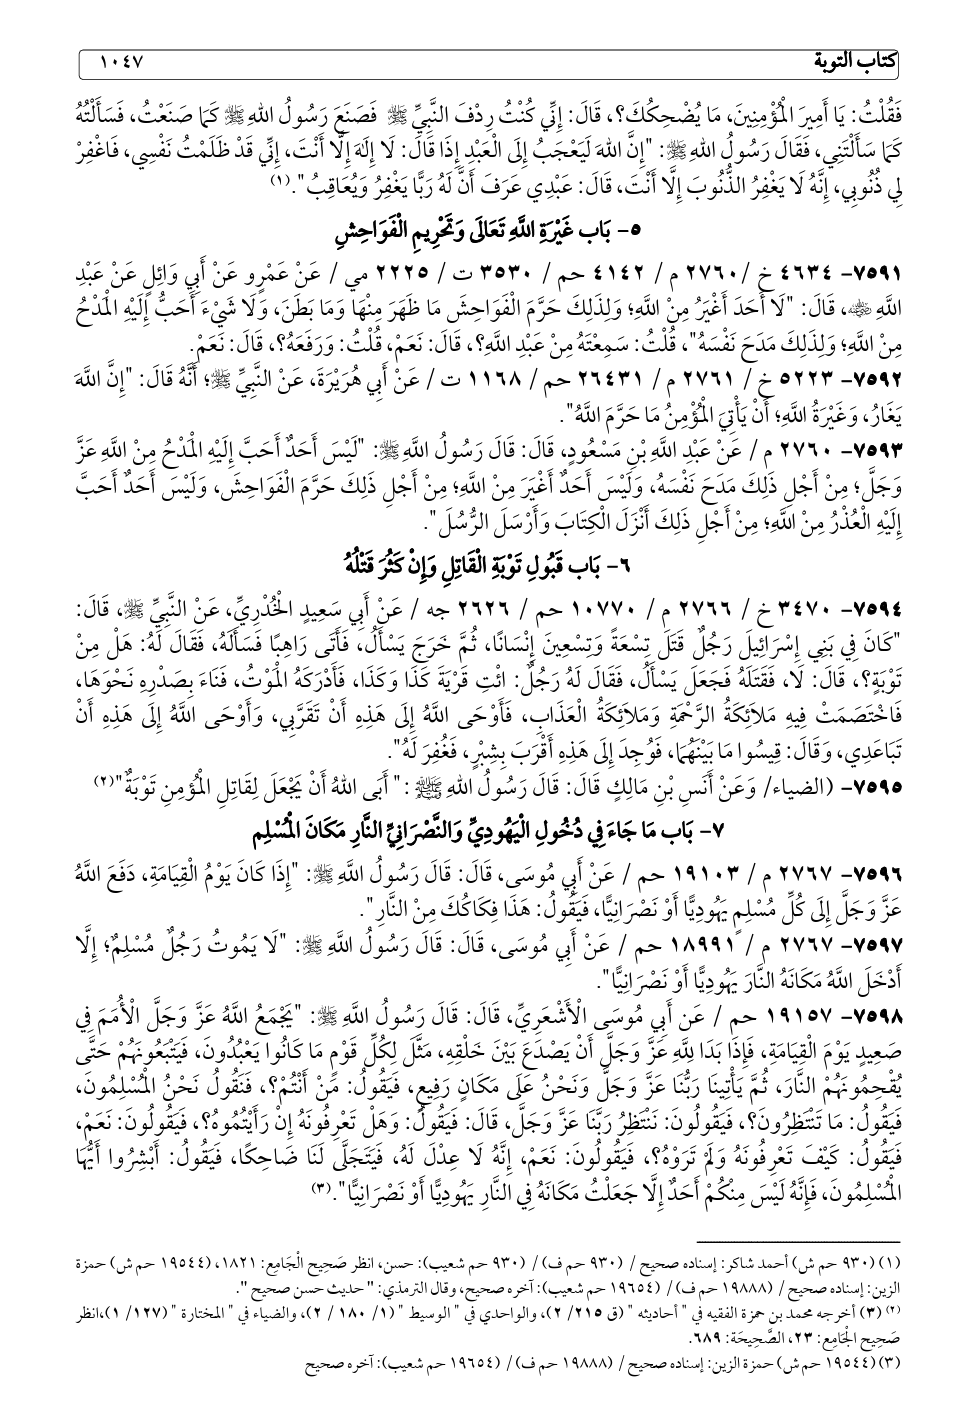 كتاب التوبة ١٠٤٧
فَقُلْتُ: يَا أَمِيرَ الْمُؤْمِنِينَ، مَا يُضْحِكُكَ؟، قَالَ: إِنِّي كُنْتُ رِدْفَ النَّبِيِّ ﷺ فَصَنَعَ رَسُولُ اللهِ ﷺ كَمَا صَنَعْتُ، فَسَأَلْتُهُ
كَمَا سَأَلْتَنِي، فَقَالَ رَسُولُ اللهِ ﷺ: "إِنَّ اللهَ لَيَعْجَبُ إِلَى الْعَبْدِ إِذَا قَالَ: لَا إِلَهَ إِلَّا أَنْتَ، إِنِّي قَدْ ظَلَمْتُ نَفْسِي، فَاغْفِرْ
لِي ذُنُوبِي، إِنَّهُ لَا يَغْفِرُ الذُّنُوبَ إِلَّا أَنْتَ، قَالَ: عَبْدِي عَرَفَ أَنَّ لَهُ رَبًّا يَغْفِرُ وَيُعَاقِبُ".(١)
٥- بَاب غَيْرَةِ اللَّهِ تَعَالَى وَتَحْرِيمِ الْفَوَاحِشِ
٧٥٩١- ٤٦٣٤ خ / ٢٧٦٠ م / ٤١٤٢ حم / ٣٥٣٠ ت / ٢٢٢٥ مي / عَنْ عَمْرٍو عَنْ أَبِي وَائِلٍ عَنْ عَبْدِ
اللَّهِ ﵁، قَالَ: "لَا أَحَدَ أَغْيَرُ مِنْ اللَّهِ؛ وَلِذَلِكَ حَرَّمَ الْفَوَاحِشَ مَا ظَهَرَ مِنْهَا وَمَا بَطَنَ، وَلَا شَيْءَ أَحَبُّ إِلَيْهِ الْمَدْحُ
مِنْ اللَّهِ؛ وَلِذَلِكَ مَدَحَ نَفْسَهُ"، قُلْتُ: سَمِعْتَهُ مِنْ عَبْدِ اللَّهِ؟، قَالَ: نَعَمْ، قُلْتُ: وَرَفَعَهُ؟، قَالَ: نَعَمْ.
٧٥٩٢- ٥٢٢٣ خ / ٢٧٦١ م / ٢٦٤٣١ حم / ١١٦٨ ت / عَنْ أَبِي هُرَيْرَةَ، عَنْ النَّبِيِّ ﷺ؛ أَنَّهُ قَالَ: "إِنَّ اللَّهَ
يَغَارُ، وَغَيْرَةُ اللَّهِ؛ أَنْ يَأْتِيَ الْمُؤْمِنُ مَا حَرَّمَ اللَّهُ".
٧٥٩٣- ٢٧٦٠ م / عَنْ عَبْدِ اللَّهِ بْنِ مَسْعُودٍ، قَالَ: قَالَ رَسُولُ اللَّهِ ﷺ: "لَيْسَ أَحَدٌ أَحَبَّ إِلَيْهِ الْمَدْحُ مِنْ اللَّهِ عَزَّ
وَجَلَّ؛ مِنْ أَجْلِ ذَلِكَ مَدَحَ نَفْسَهُ، وَلَيْسَ أَحَدٌ أَغْيَرَ مِنْ اللَّهِ؛ مِنْ أَجْلِ ذَلِكَ حَرَّمَ الْفَوَاحِشَ، وَلَيْسَ أَحَدٌ أَحَبَّ
إِلَيْهِ الْعُذْرُ مِنْ اللَّهِ؛ مِنْ أَجْلِ ذَلِكَ أَنْزَلَ الْكِتَابَ وَأَرْسَلَ الرُّسُلَ".
٦- بَاب قَبُولِ تَوْبَةِ الْقَاتِلِ وَإِنْ كَثُرَ قَتْلُهُ
٧٥٩٤- ٣٤٧٠ خ / ٢٧٦٦ م / ١٠٧٧٠ حم / ٢٦٢٦ جه / عَنْ أَبِي سَعِيدٍ الْخُدْرِيِّ، عَنْ النَّبِيِّ ﷺ، قَالَ:
"كَانَ فِي بَنِي إِسْرَائِيلَ رَجُلٌ قَتَلَ تِسْعَةً وَتِسْعِينَ إِنْسَانًا، ثُمَّ خَرَجَ يَسْأَلُ، فَأَتَى رَاهِبًا فَسَأَلَهُ، فَقَالَ لَهُ: هَلْ مِنْ
تَوْبَةٍ؟، قَالَ: لَا، فَقَتَلَهُ فَجَعَلَ يَسْأَلُ، فَقَالَ لَهُ رَجُلٌ: ائْتِ قَرْيَةَ كَذَا وَكَذَا، فَأَدْرَكَهُ الْمَوْتُ، فَنَاءَ بِصَدْرِهِ نَحْوَهَا،
فَاخْتَصَمَتْ فِيهِ مَلَائِكَةُ الرَّحْمَةِ وَمَلَائِكَةُ الْعَذَابِ، فَأَوْحَى اللَّهُ إِلَى هَذِهِ أَنْ تَقَرَّبِي، وَأَوْحَى اللَّهُ إِلَى هَذِهِ أَنْ
تَبَاعَدِي، وَقَالَ: قِيسُوا مَا بَيْنَهُمَا، فَوُجِدَ إِلَى هَذِهِ أَقْرَبَ بِشِبْرٍ، فَغُفِرَ لَهُ".
٧٥٩٥- (الضياء/ وَعَنْ أَنَسِ بْنِ مَالِكٍ قَالَ: قَالَ رَسُولُ اللهِ ﷺ :" أَبَى اللهُ أَنْ يَجْعَلَ لِقَاتِلِ الْمُؤْمِنِ تَوْبَةٌ"(٢)
٧- بَاب مَا جَاءَ فِي دُخُولِ الْيَهُودِيِّ وَالنَّصْرَانِيِّ النَّارِ مَكَانَ الْمُسْلِمِ
٧٥٩٦- ٢٧٦٧ م / ١٩١٠٣ حم / عَنْ أَبِي مُوسَى، قَالَ: قَالَ رَسُولُ اللَّهِ ﷺ: "إِذَا كَانَ يَوْمُ الْقِيَامَةِ، دَفَعَ اللَّهُ
عَزَّ وَجَلَّ إِلَى كُلِّ مُسْلِمٍ يَهُودِيًّا أَوْ نَصْرَانِيًّا، فَيَقُولُ: هَذَا فِكَاكُكَ مِنْ النَّارِ".
٧٥٩٧- ٢٧٦٧ م / ١٨٩٩١ حم / عَنْ أَبِي مُوسَى، قَالَ: قَالَ رَسُولُ اللَّهِ ﷺ: "لَا يَمُوتُ رَجُلٌ مُسْلِمٌ؛ إِلَّا
أَدْخَلَ اللَّهُ مَكَانَهُ النَّارَ يَهُودِيًّا أَوْ نَصْرَانِيًّا".
٧٥٩٨- ١٩١٥٧ حم / عَن أَبِي مُوسَى الْأَشْعَرِيِّ، قَالَ: قَالَ رَسُولُ اللَّهِ ﷺ: "يَجْمَعُ اللَّهُ عَزَّ وَجَلَّ الْأُمَمَ فِي
صَعِيدٍ يَوْمَ الْقِيَامَةِ، فَإِذَا بَدَا لِلَّهِ عَزَّ وَجَلَّ أَنْ يَصْدَعَ بَيْنَ خَلْقِهِ، مَثَّلَ لِكُلِّ قَوْمٍ مَا كَانُوا يَعْبُدُونَ، فَيَتْبَعُونَهُمْ حَتَّى
يُقْحِمُونَهُمْ النَّارَ، ثُمَّ يَأْتِينَا رَبُّنَا عَزَّ وَجَلَّ وَنَحْنُ عَلَى مَكَانٍ رَفِيعٍ، فَيَقُولُ: مَنْ أَنْتُمْ؟، فَنَقُولُ نَحْنُ الْمُسْلِمُونَ،
فَيَقُولُ: مَا تَنْتَظِرُونَ؟، فَيَقُولُونَ: نَنْتَظِرُ رَبَّنَا عَزَّ وَجَلَّ، قَالَ: فَيَقُولُ: وَهَلْ تَعْرِفُونَهُ إِنْ رَأَيْتُمُوهُ؟، فَيَقُولُونَ: نَعَمْ،
فَيَقُولُ: كَيْفَ تَعْرِفُونَهُ وَلَمْ تَرَوْهُ؟، فَيَقُولُونَ: نَعَمْ، إِنَّهُ لَا عِدْلَ لَهُ، فَيَتَجَلَّى لَنَا ضَاحِكًا، فَيَقُولُ: أَبْشِرُوا أَيُّهَا
الْمُسْلِمُونَ، فَإِنَّهُ لَيْسَ مِنْكُمْ أَحَدٌ إِلَّا جَعَلْتُ مَكَانَهُ فِي النَّارِ يَهُودِيًّا أَوْ نَصْرَانِيًّا".(٣)
(١) (٩٣٠ حم ش) أحمد شاكر: إسناده صحيح / (٩٣٠ حم ف) / (٩٣٠ حم شعيب): حسن، انظر صَحِيح الْجَامِع: ١٨٢١، (١٩٥٤٤ حم ش) حمزة
الزين: إسناده صحيح / (١٩٨٨٨ حم ف) / (١٩٦٥٤ حم شعيب): آخره صحيح، وقال الترمذي: " حديث حسن صحيح ".
(٢) (٣) أخرجه محمد بن حمزة الفقيه في " أحاديثه " (ق ٢١٥/ ٢)، والواحدي في " الوسيط " (١/ ١٨٠ / ٢)، والضياء في " المختارة " (١٢٧/ ١)،انظر
صَحِيح الْجَامِع: ٢٣، الصَّحِيحَة: ٦٨٩.
(٣) (١٩٥٤٤ حم ش) حمزة الزين: إسناده صحيح / (١٩٨٨٨ حم ف) / (١٩٦٥٤ حم شعيب): آخره صحيح